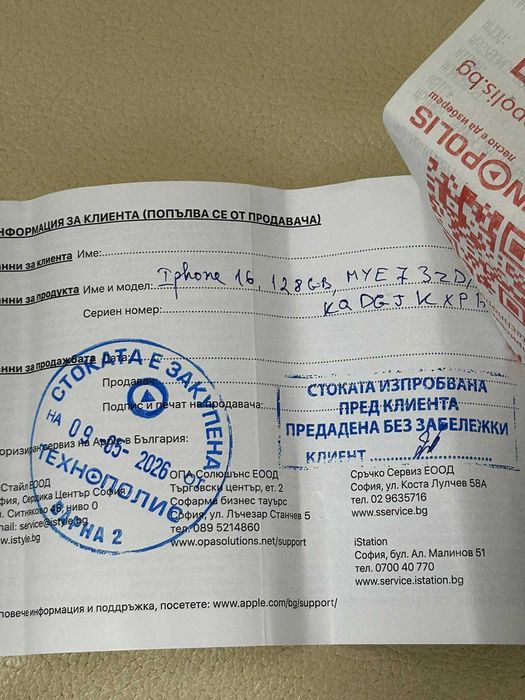 opolis.bg
лесно е да избереш
NOPOLIS
НФОРМАЦИЯ ЗА КЛИЕНТА (ПОПЪЛВА СЕ ОТ ПРОДАВАЧА)
анни за клиента Име:
анни за продукта Име и модел: Iphone 16, 128GB MYE73ZD/
Сериен номер: KQDGJKXPH
анни за продажбата Дата:
Продавач
Подпис и печат на продавача:
СТОКАТА Е ЗАКУПЕНА
НА 09-05-2026 ОТ
ТЕХНОПОЛИС
ВАРНА 2
СТОКАТА ИЗПРОБВАНА
ПРЕД КЛИЕНТА
ПРЕДАДЕНА БЕЗ ЗАБЕЛЕЖКИ
КЛИЕНТ
оризиран сервиз на Apple в България:
Стайл ЕООД
фия, Сердика Център София
л. Ситняково 48, ниво 0
mail: service@istyle.bg
istyle.bg
ОПА Солюшънс ЕООД
Търговски център, ет. 2
Софарма бизнес тауърс
София, ул. Лъчезар Станчев 5
тел. 089 5214860
www.opasolutions.net/support
Сръчко Сервиз ЕООД
София, ул. Коста Лулчев 58А
тел. 02 9635716
www.sservice.bg
iStation
София, бул. Ал. Малинов 51
тел. 0700 40 770
www.service.istation.bg
повече информация и поддръжка, посетете: www.apple.com/bg/support/